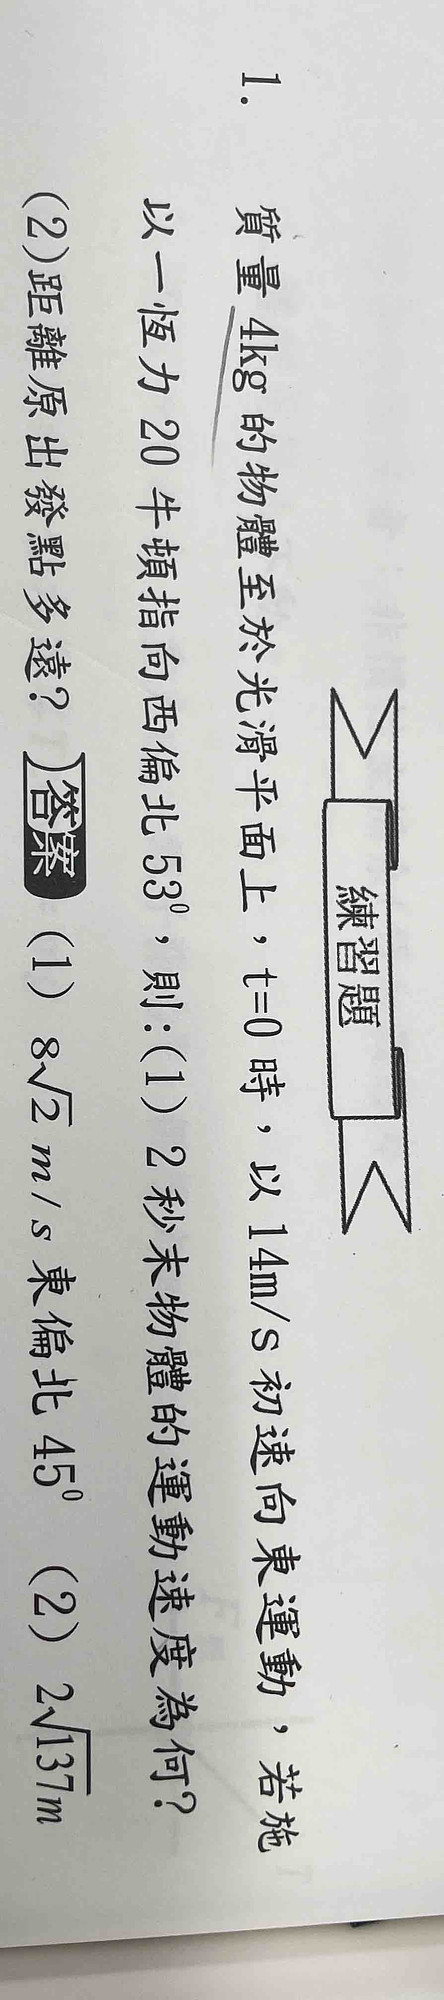 練習題
1. 質量 4kg 的物體至於光滑平面上，t=0 時，以 14m/s 初速向東運動，若施
以一恆力 20 牛頓指向西偏北 53⁰，則:(1) 2 秒末物體的運動速度為何?
(2)距離原出發點多遠? 答案 (1) 8√2 m/s 東偏北 45⁰ (2) 2√137m